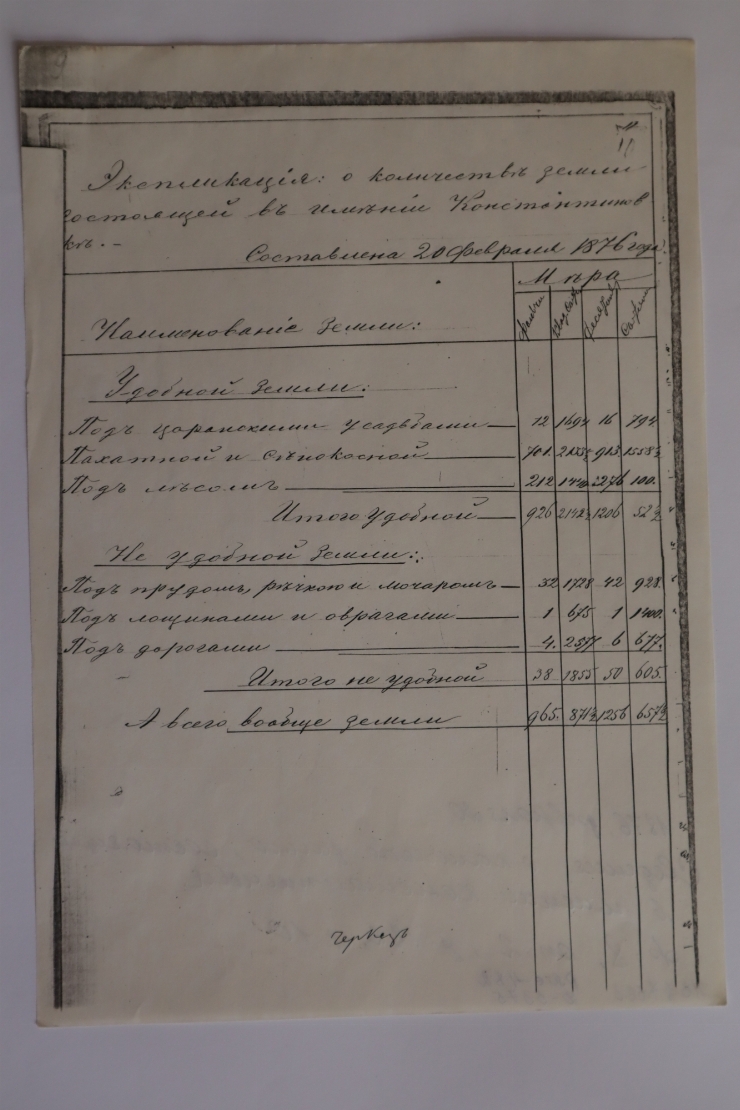 Экспликація: о количествѣ земли
состоящей въ имѣніи Константинов
кѣ. -
Составлена 20 Февраля 1876 года.
Мѣра
Наименованіе Земли:
Удобной Земли:
Подъ царанскими усадьбами 12 1694 16 794
Пахатной и сѣнокосной 701 913 1558½
Подъ лѣсомъ 212 276 100.
Итого удобной 926 1206 52½
Не удобной Земли:
Подъ прудомъ, рѣчкою и мочаромъ 32 1728 42 928.
Подъ лощинами и оврагами 1 675 1 1400.
Подъ дорогами 4. 2577 6 677.
Итого не удобной 38 1855 50 605.
А всего вообще земли 965. 871½ 1256 657½
черкезъ